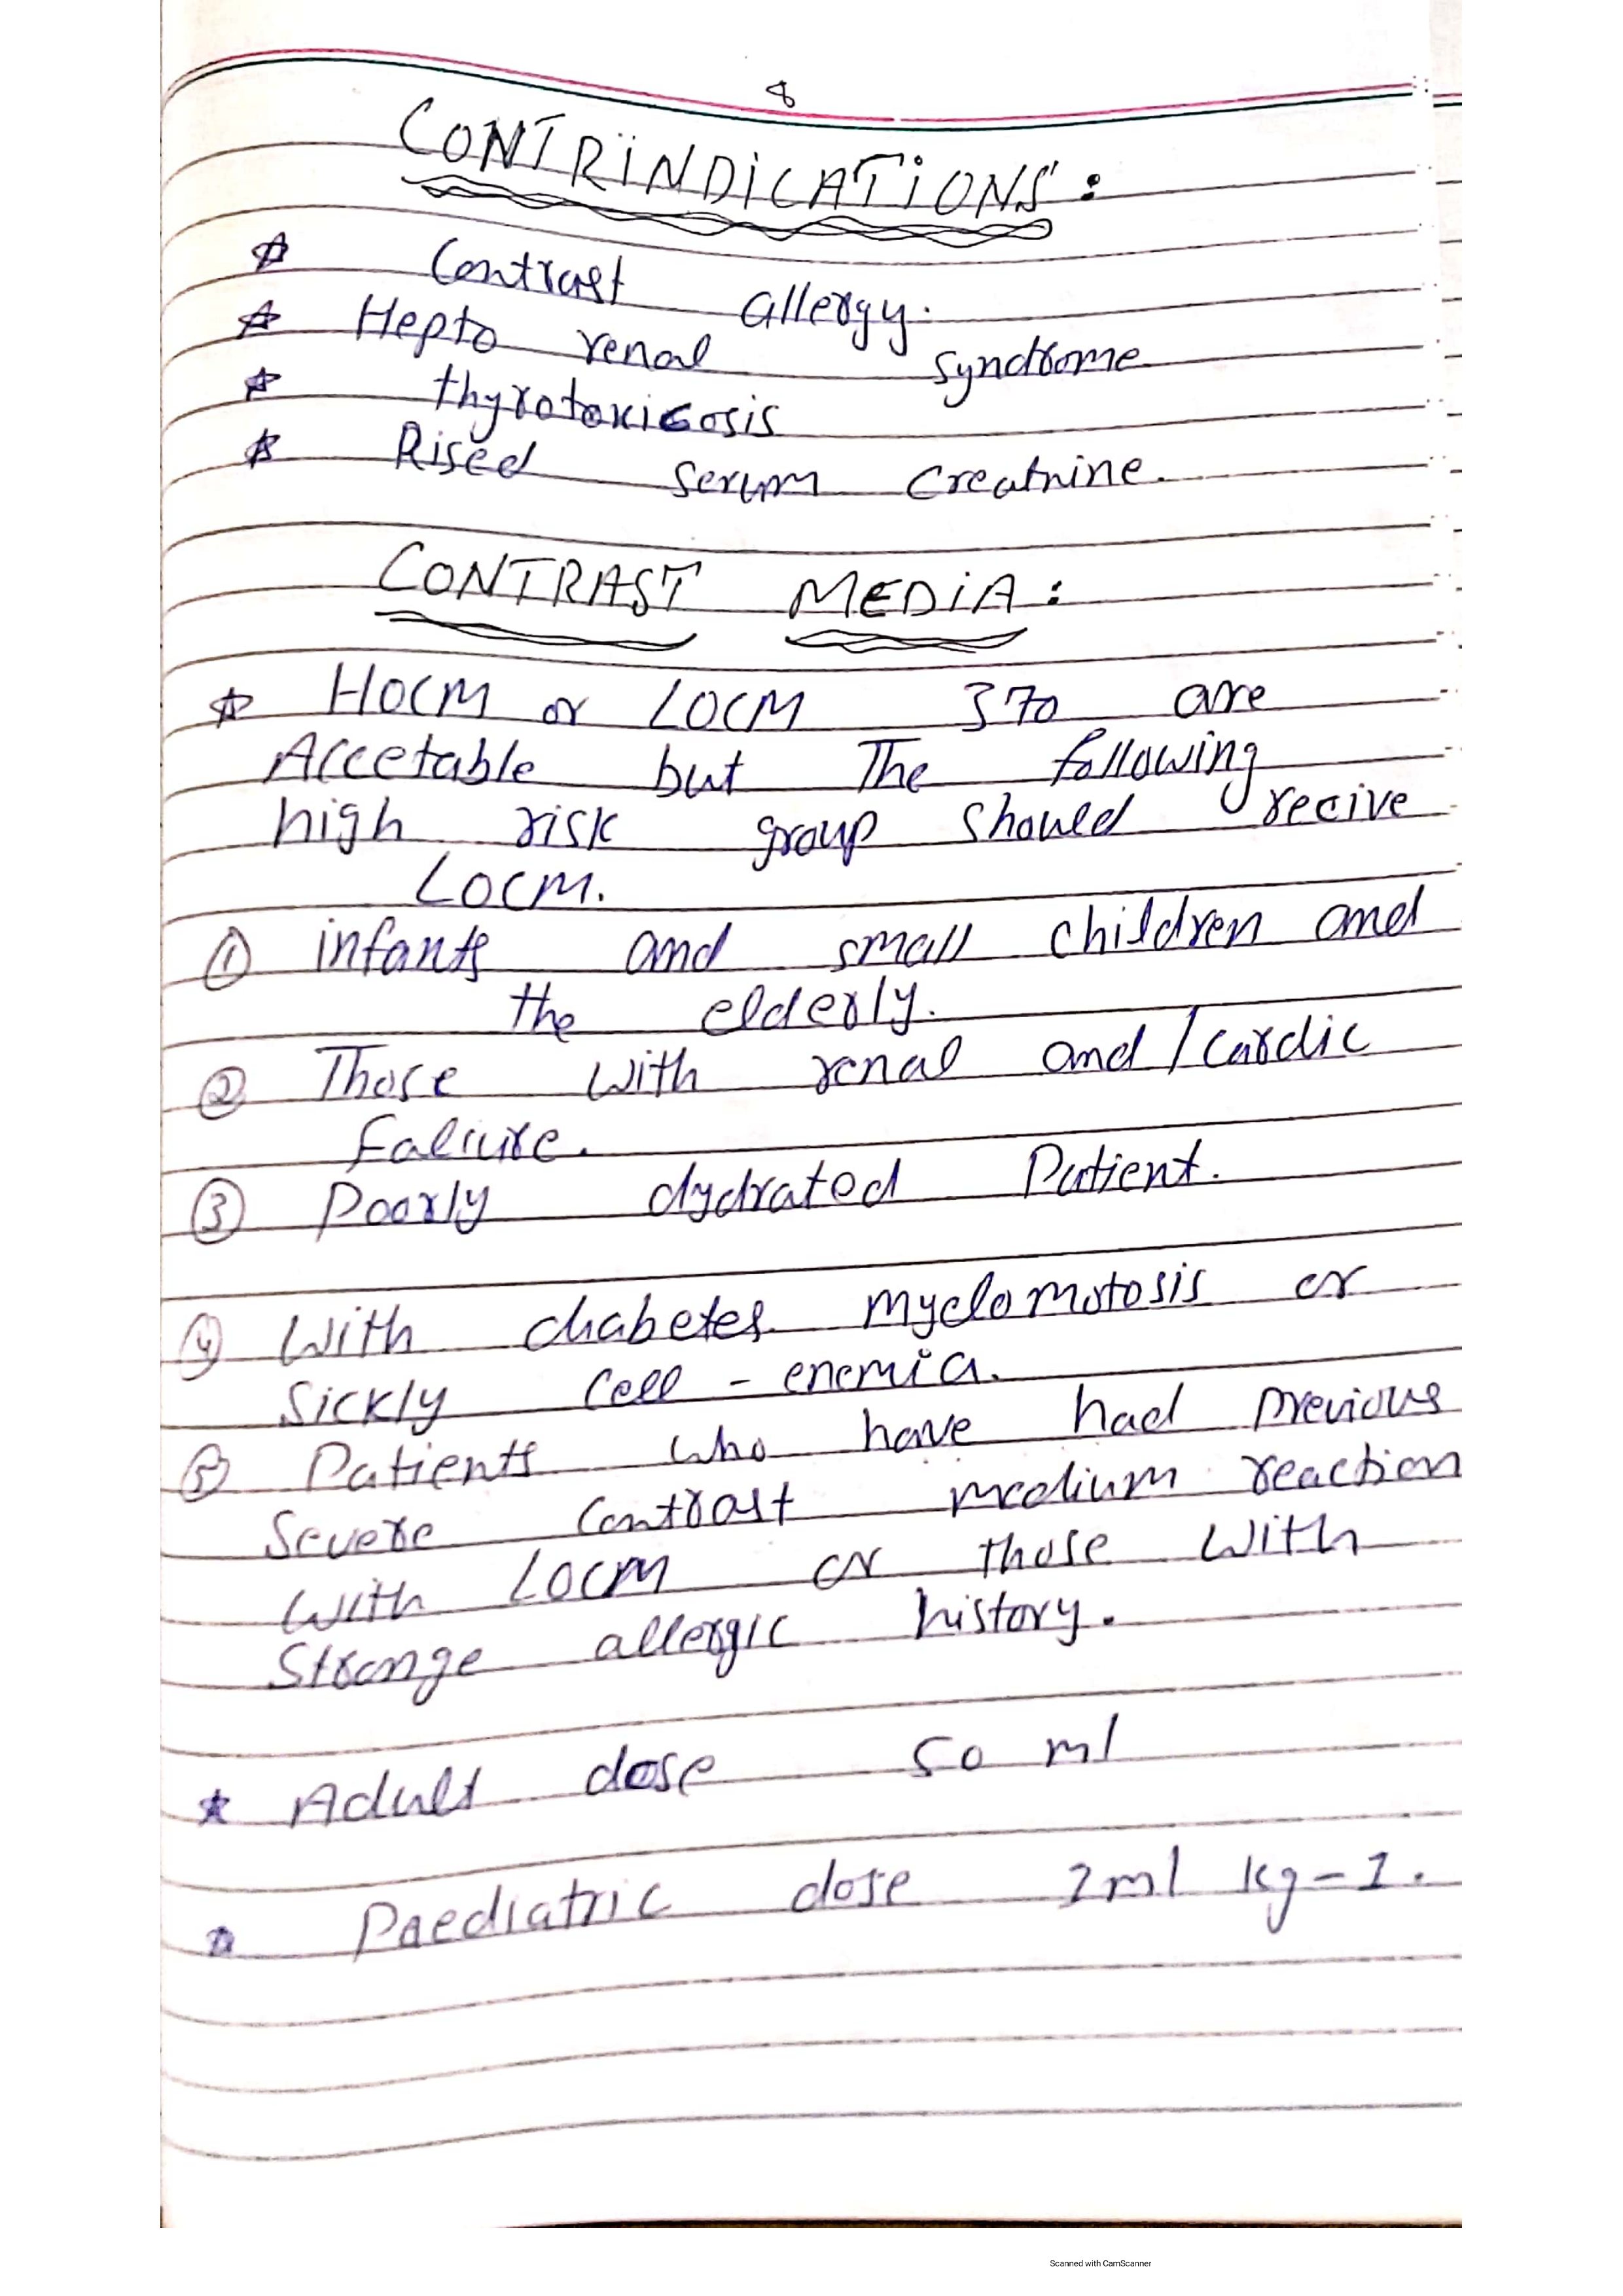 8
CONTRINDICATIONS:
☆ Contrast allergy.
☆ Hepto renal syndrome
☆ thyrotoxicosis
☆ Rised serum Creatnine.
CONTRAST MEDIA:
☆ HOCM or LOCM 370 are
Accetable but The following
high risk group should recive
LOCM.
① infants and small children and
the elderly.
② Those with renal and/cardic
Faliure.
③ Poorly dydrated Patient.
④ With diabetes myelomotosis or
Sickly Cell - enemia.
⑤ Patients who have had previous
Severe Contrast medium reaction
with LOCM or those with
Strange allergic history.
★ Adult dose 50 ml
☆ Paediatric dose 2ml kg-1.
Scanned with CamScanner